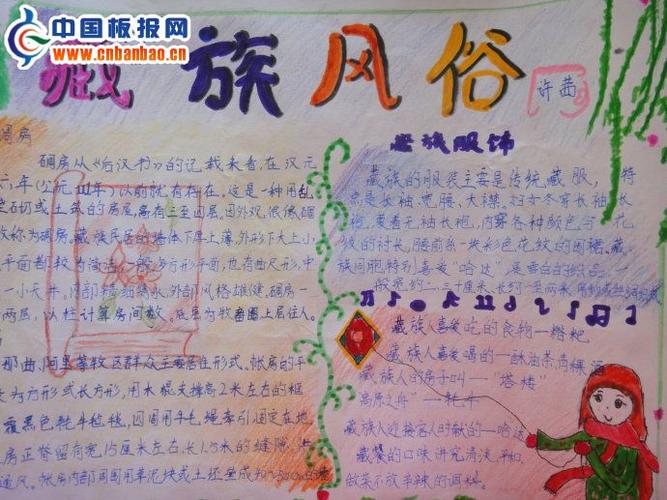 中国板报网
www.cnbanbao.cn
藏族风俗
许茜
碉房
碉房从《后汉书》的记载来看，在汉元
六年(公元111年)以前就有存在，这是一种用乱
石砌或土筑的房屋，高有三至四层，因外观很像碉
故称为碉房。藏族民居的墙体下厚上薄，外形下大上小，
平面都较为简洁，一般为方形平面，也有曲尺形，中
一小天井。内部精细隽永，外部风格雄健，碉房一
两层，以柱计算房间数。底层为牧畜圈上层住人。
那曲、阿里等牧区群众主要居住形式。帐房的平
为方形或长方形，用木棍支撑高2米左右的框
覆黑色牦牛毡毯，四周用牛毛绳牵引固定在地
房正脊留有宽15厘米左右，长1.5米的缝隙
通风。帐房内部周围用草泥块或土坯垒成
藏族服饰
藏族的服装主要是传统藏服， 特
点是长袖、宽腰、大襟。妇女冬穿长袖长
袍，夏着无袖长袍，内穿各种颜色与花
纹的衬衣，腰前系一块彩色花纹的围裙。藏
族同胞特别喜爱"哈达"，是雪白的织品，一
般宽约二、三十厘米、长约一至两米，
藏族人喜爱吃的食物—糌粑
藏族人喜爱喝的—酥油茶、青稞酒
藏族人的房子叫—"塔楼"
"高原之舟"—牦牛
藏族人迎接客人时献的—哈达
藏餐的口味讲究清淡、平和
做菜不放辛辣的调料。